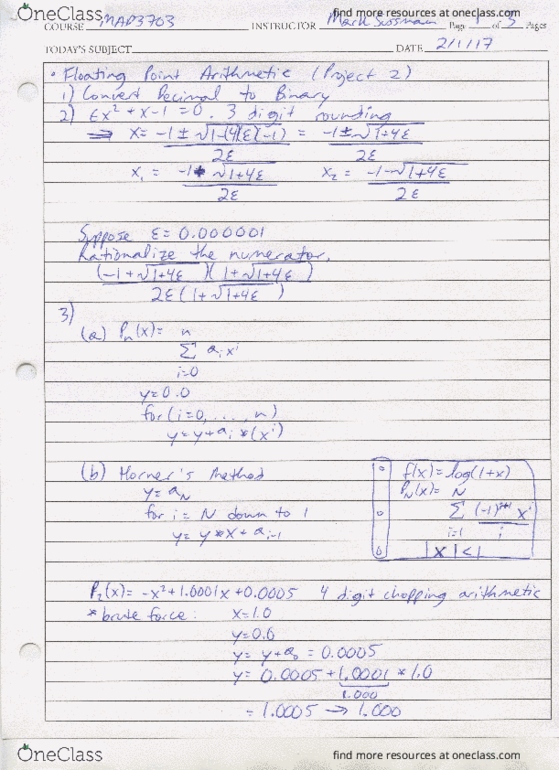 OneClass
find more resources at oneclass.com
COURSE MAP3703 INSTRUCTOR Mark Sussman Page 1 of 3 Pages
TODAY'S SUBJECT DATE 2/1/17
• Floating Point Arithmetic (Project 2)
1) Convert Decimal to Binary
2) εx² + x - 1 = 0. 3 digit rounding
⇒ x = -1 ± √1-(4)(ε)(-1) / 2ε = -1 ± √1+4ε / 2ε
x₁ = -1 + √1+4ε / 2ε x₂ = -1 - √1+4ε / 2ε
Suppose ε = 0.000001
Rationalize the numerator.
(-1+√1+4ε)(1+√1+4ε)
2ε(1+√1+4ε)
3)
(a) Pₙ(x) = n
Σ aᵢxⁱ
i=0
y = 0.0
for (i=0, ..., n)
y = y + aᵢ * (xⁱ)
(b) Horner's Method
y = a_N
for i = N down to 1
y = y * x + aᵢ₋₁
f(x) = log(1+x)
P_N(x) = N
Σ (-1)ⁱ⁺¹ xⁱ / i
i=1
|x| < 1
P₂(x) = -x² + 1.0001x + 0.0005 4 digit chopping arithmetic
* brute force: x = 1.0
y = 0.0
y = y + a₀ = 0.0005
y = 0.0005 + 1.0001 * 1.0
1.000
= 1.0005 → 1.000
OneClass
find more resources at oneclass.com